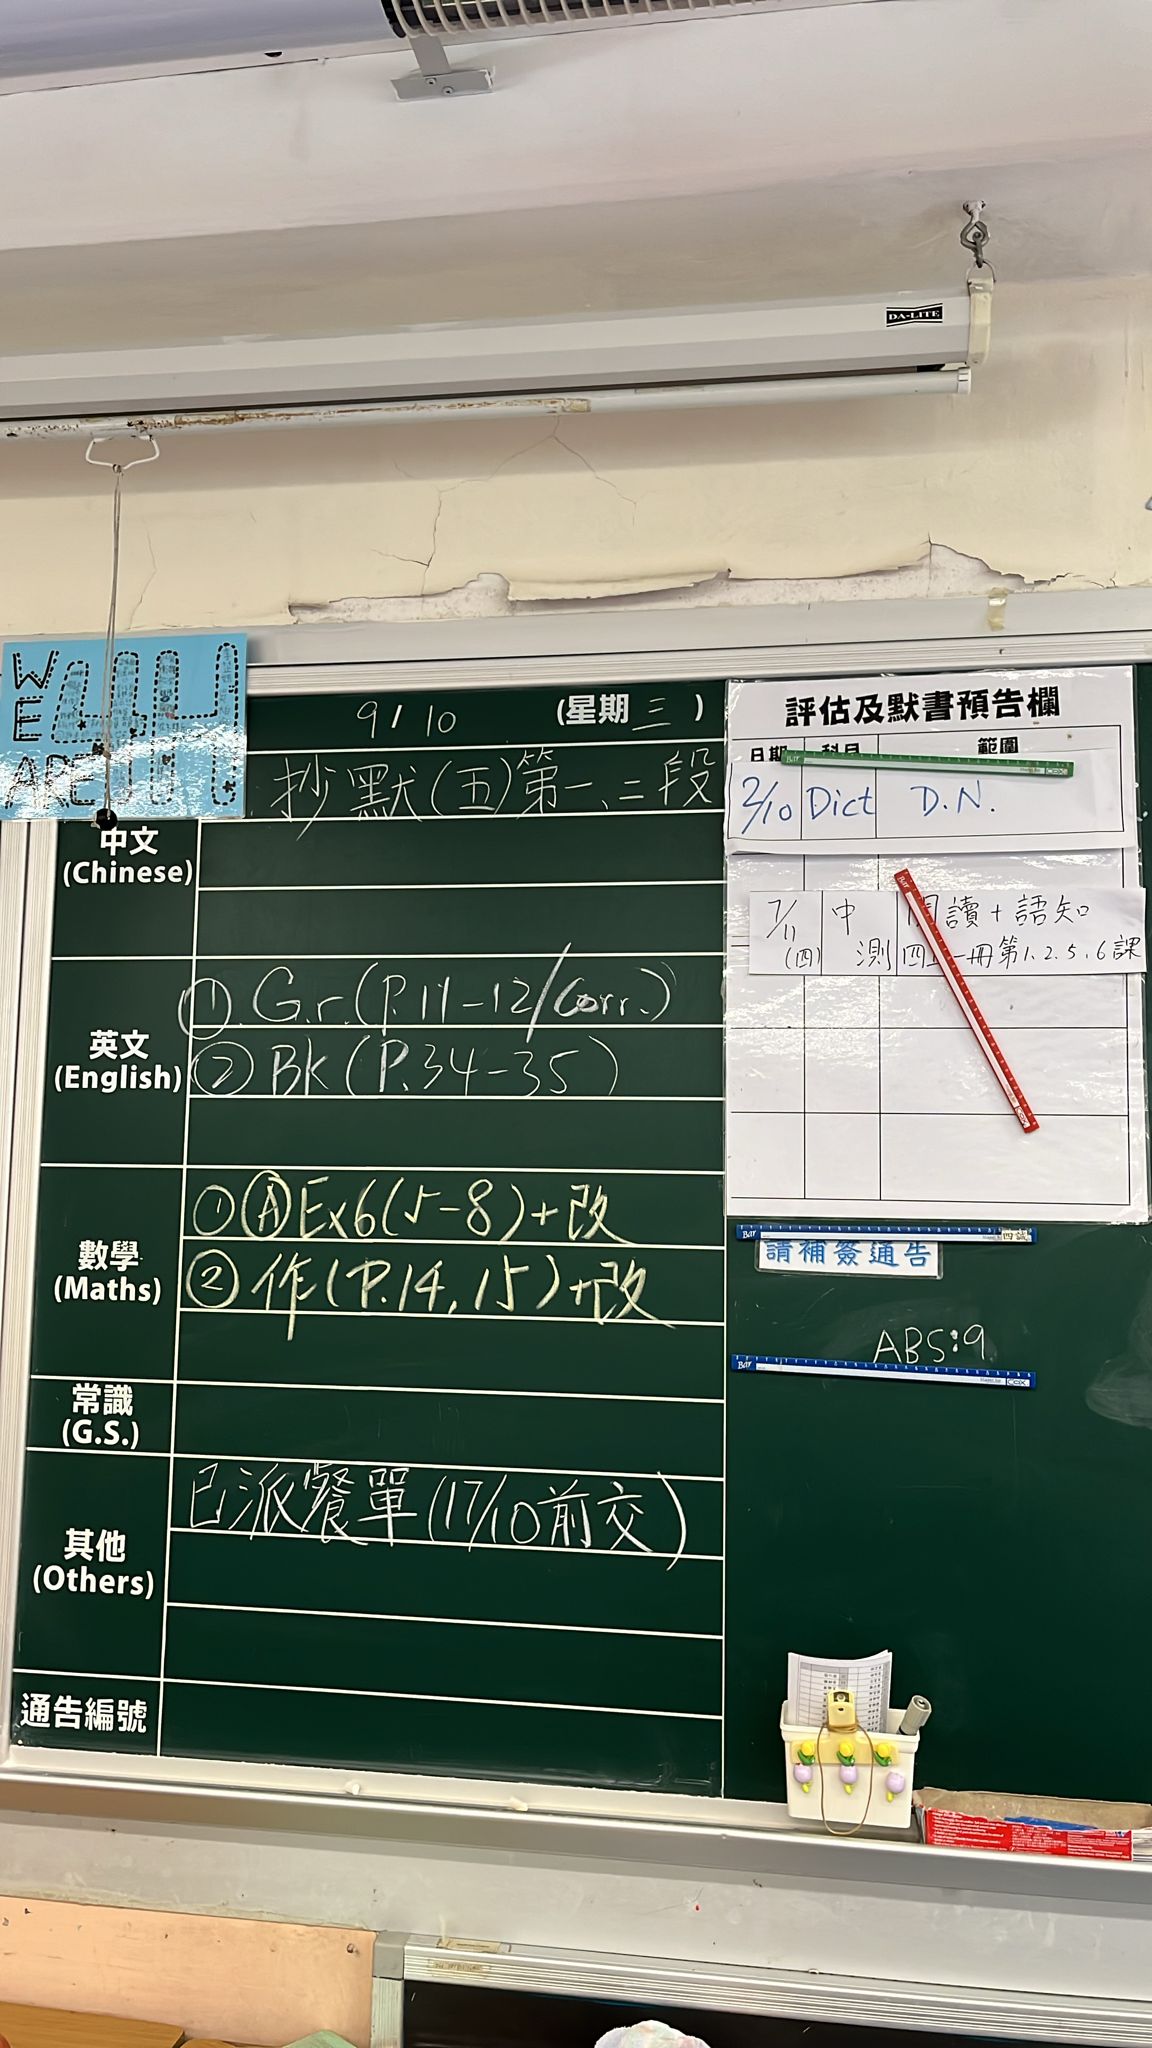 DA-LITE
WE
ARE
9/10 (星期三)
抄默(五)第一、二段
中文
(Chinese)
英文
(English)
① Gr.(P.11-12/Corr.)
② BK(P.34-35)
數學
(Maths)
①ⒶEx6(5-8)+改
②作(P.14,15)+改
常識
(G.S.)
其他
(Others)
已派餐單(17/10前交)
通告編號
評估及默書預告欄
日期 科目 範圍
2/10 Dict D.N.
7/11 中 閱讀+語知
(四) 測 四上一冊第1.2.5.6課
四誠
請補簽通告
ABS:9